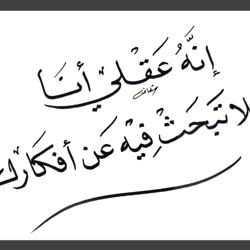 إنَّهُ عَقْلي أنَا
لا تَبحَثْ فِيْهِ عَن أفكَارك